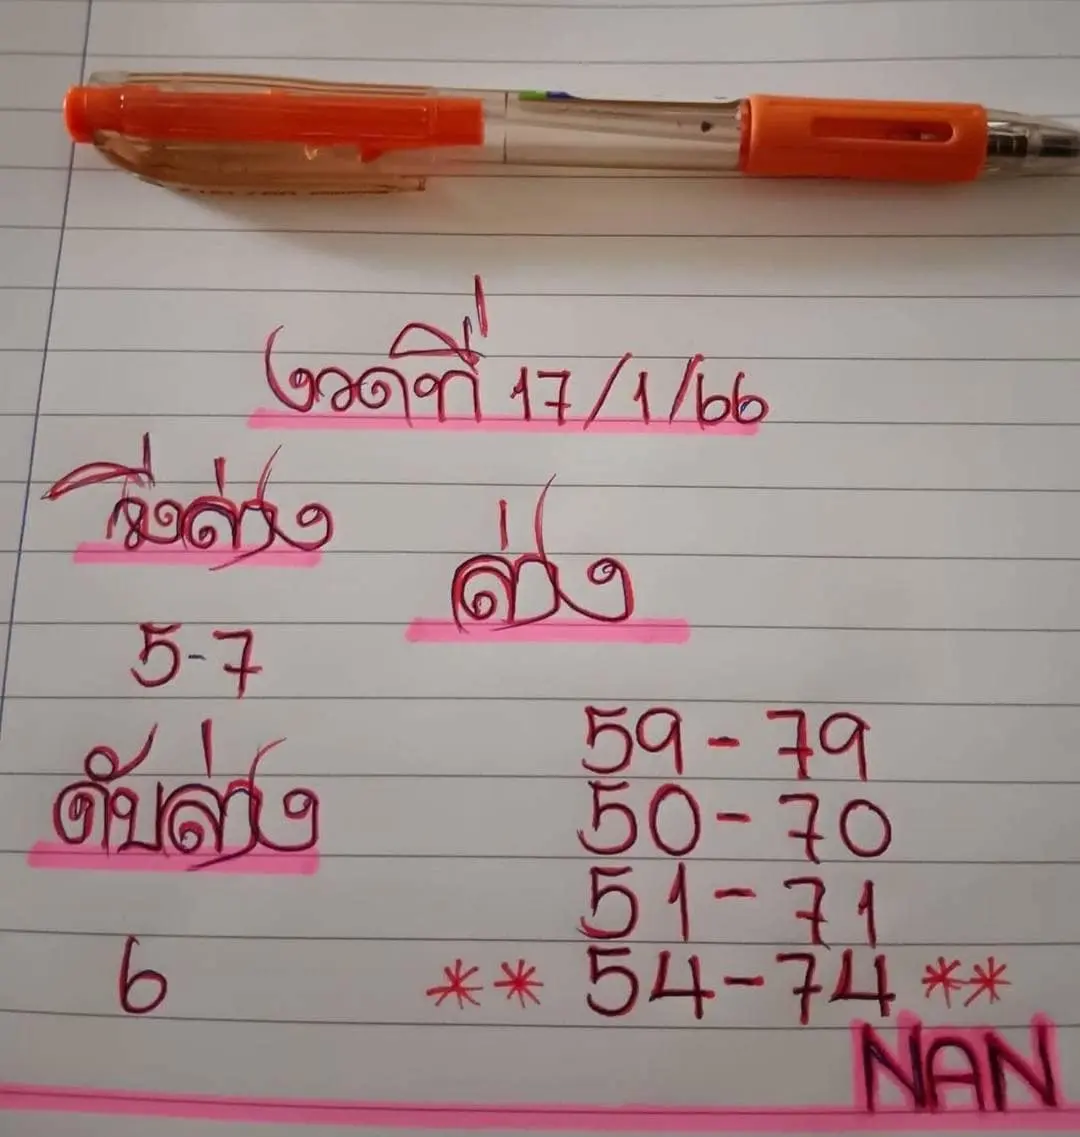 งวดที่ 17/1/66
วิ่งล่าง
ล่าง
5-7
59-79
ดับล่าง
50-70
51-71
6
** 54-74 **
NAN